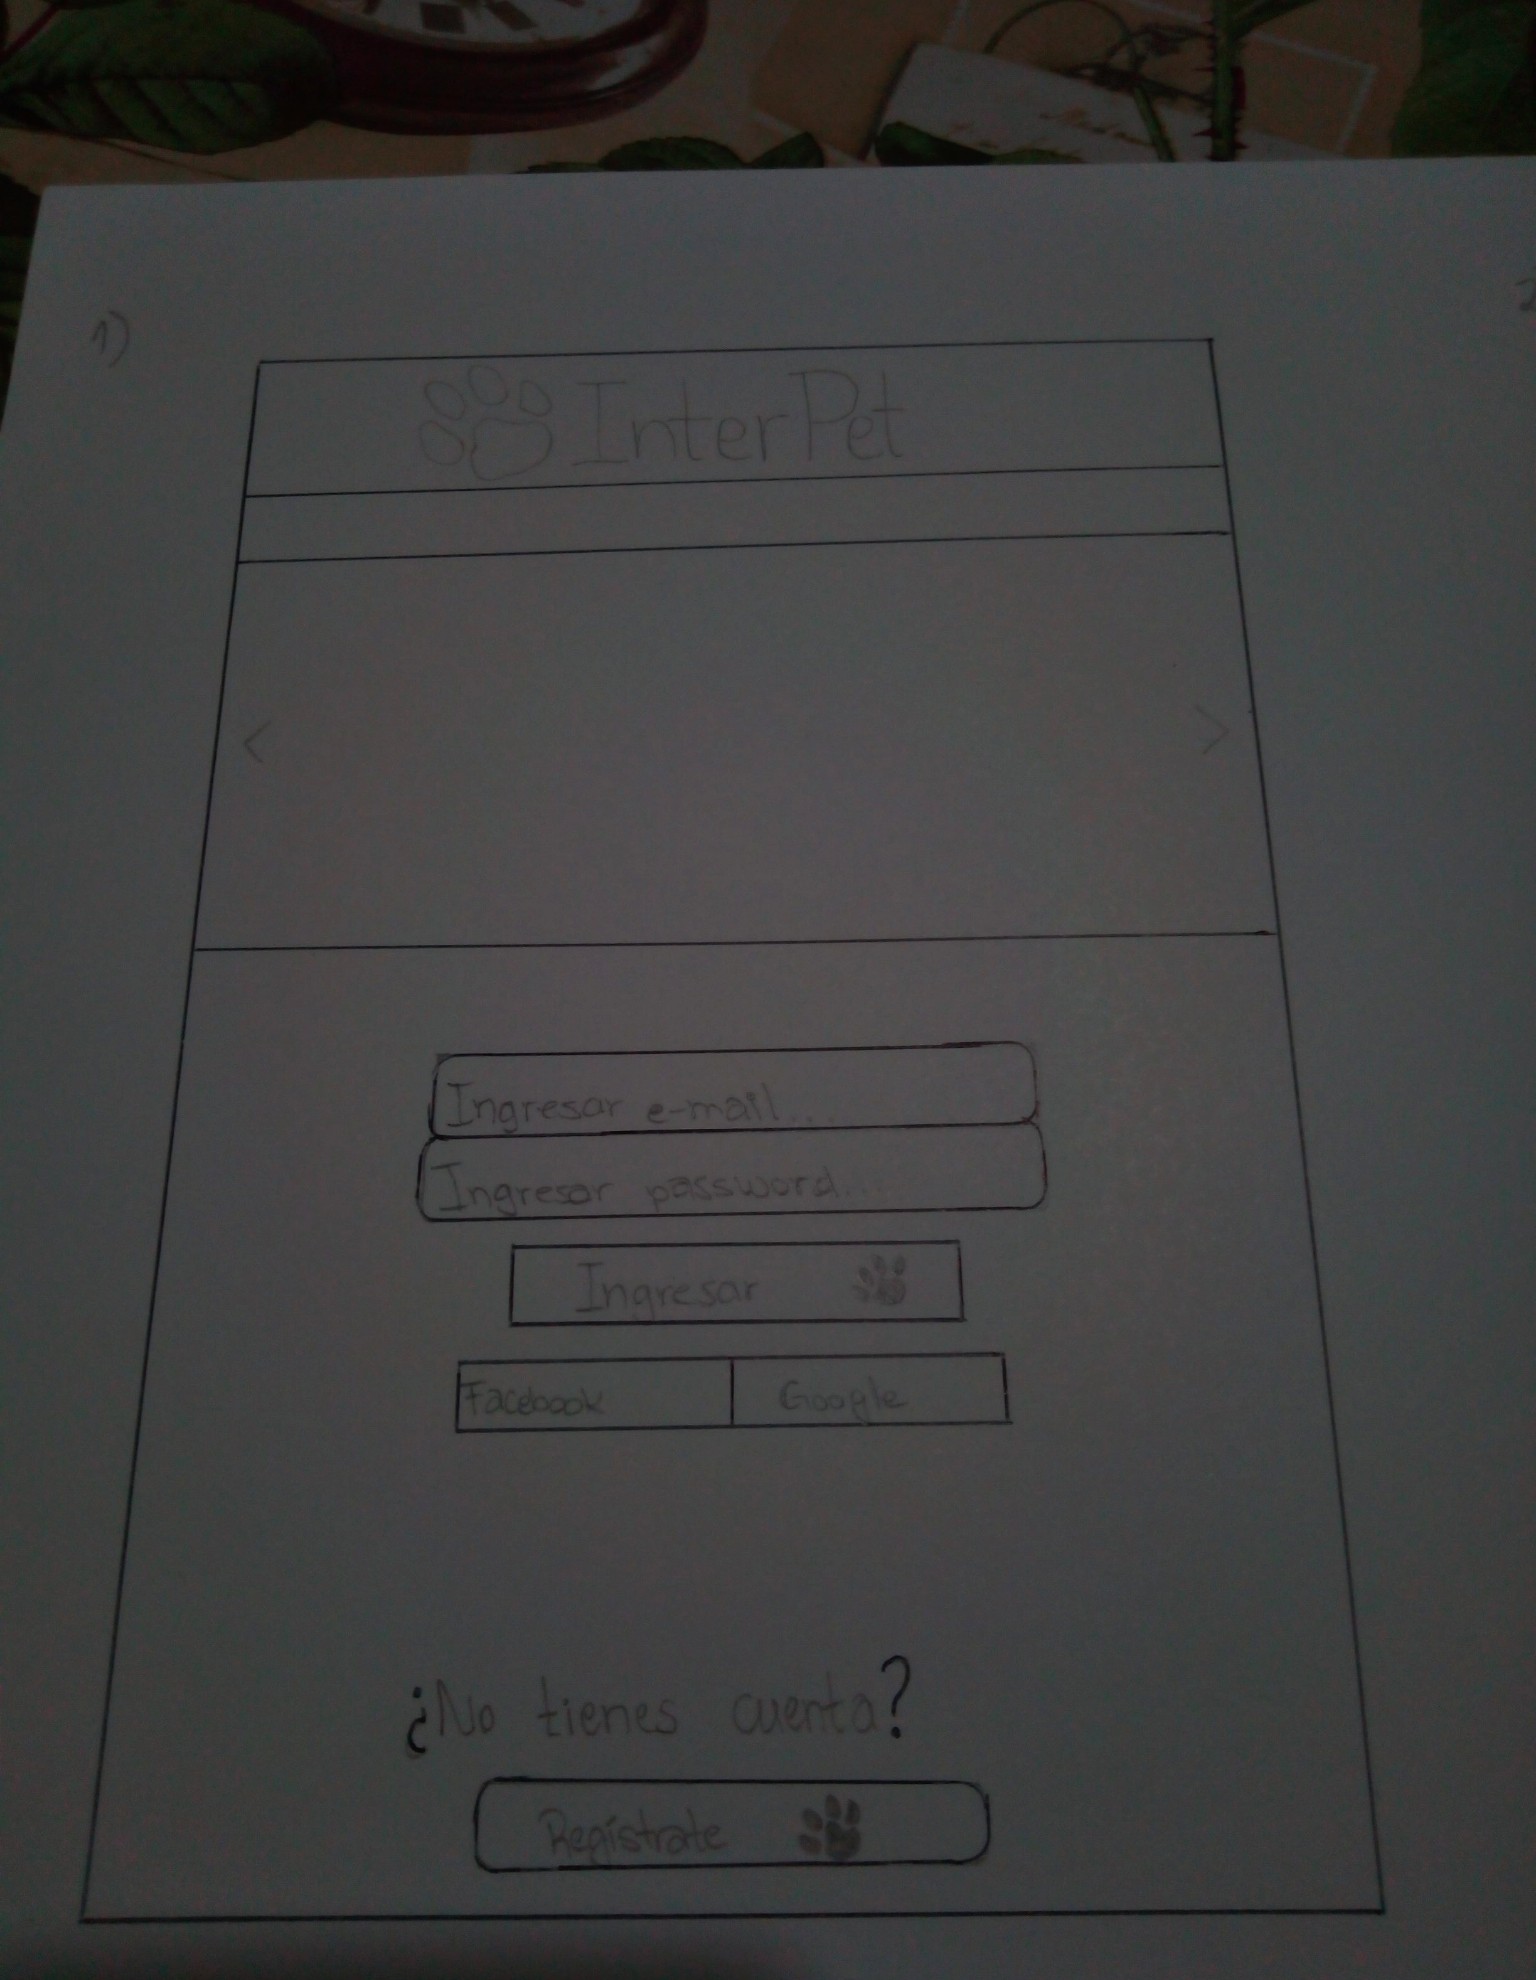 1)
InterPet
<
>
Ingresar e-mail...
Ingresar password...
Ingresar
Facebook Google
¿No tienes cuenta?
Regístrate